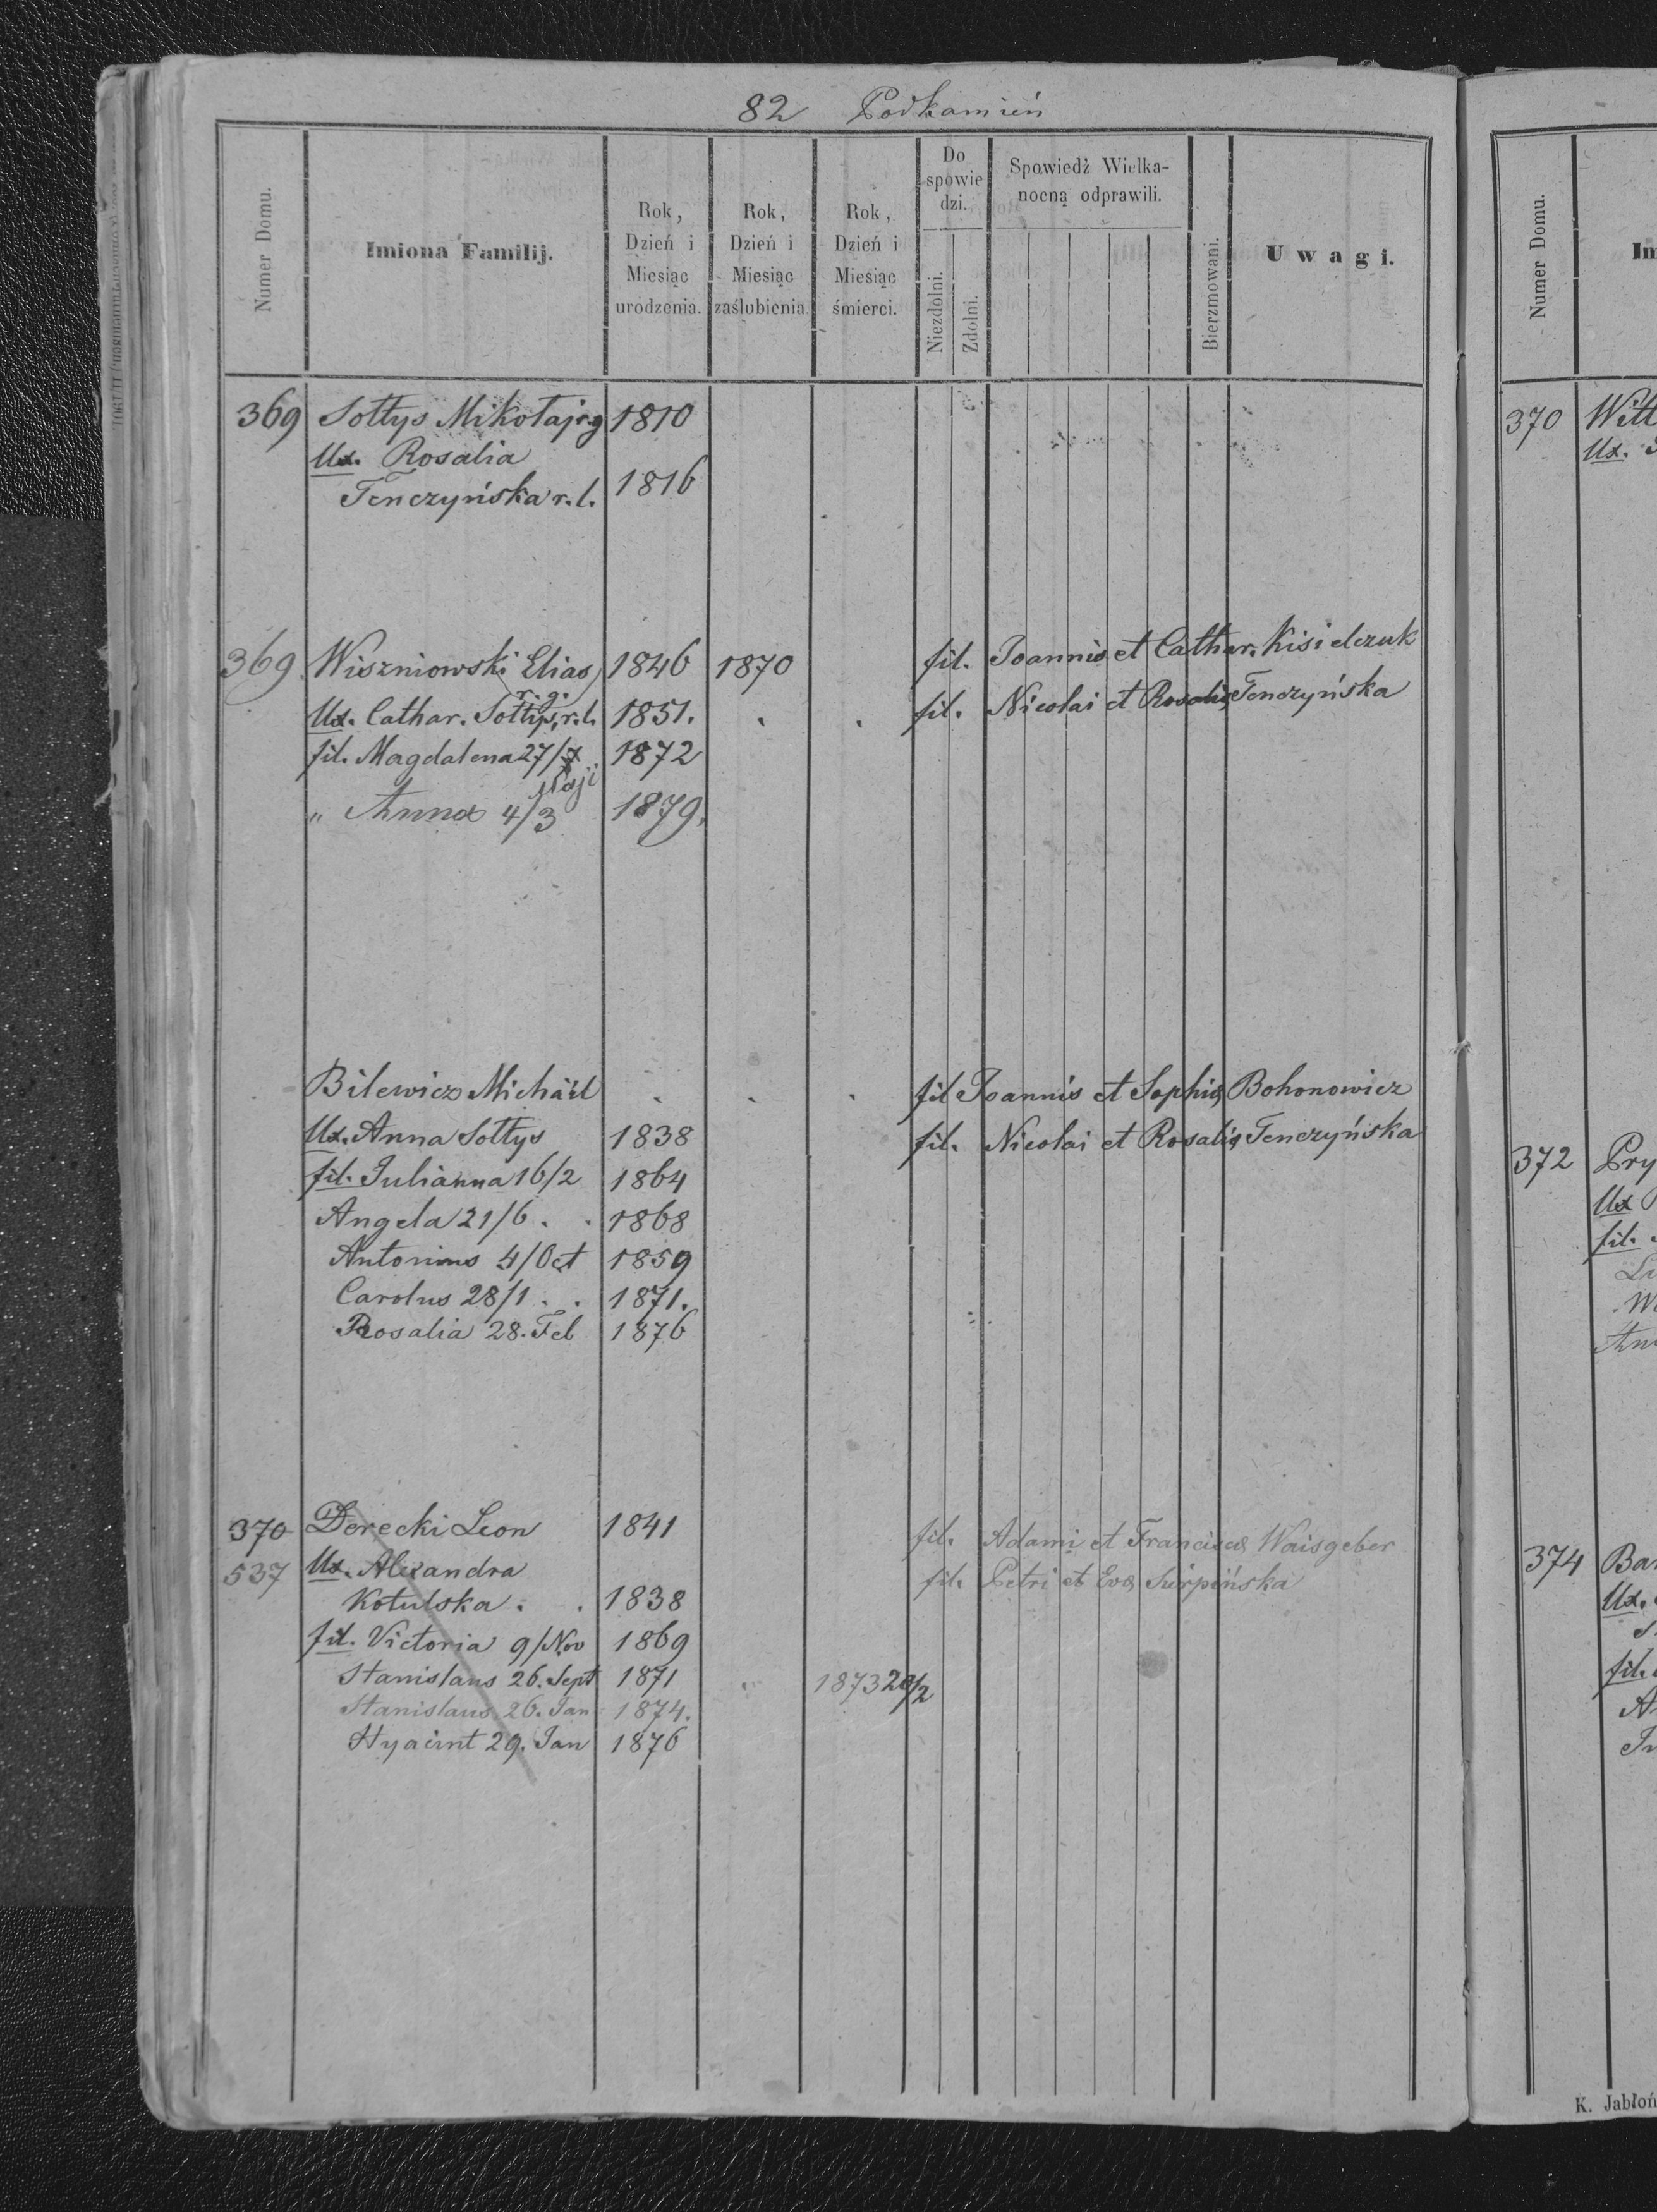 82 Podkamień
Numer Domu.
Imiona Familij.
Rok, Dzień i Miesiąc urodzenia.
Rok, Dzień i Miesiąc zaślubienia.
Rok, Dzień i Miesiąc śmierci.
Do spowiedzi.
Niezdolni.
Zdolni.
Spowiedź Wielkanocną odprawili.
Bierzmowani.
Uwagi.
369 Sołtys Mikołaj r.g 1810
Ux. Rosalia
Tenczyńska r.l. 1816
369. Wiszniowski Elias 1846 1870 fil. Joannis et Cathar. Kisielczuk
r.g.
Ux. Cathar. Sołtys, r.l. 1851. fil. Nicolai et Rosalia Tenczyńska
fil. Magdalena 27/7 1872
Maji
" Anna 4/3 1879.
Bilewicz Michaël fil Joannis et Sophia Bohonowicz
Ux. Anna Sołtys 1838 fil. Nicolai et Rosalia Tenczyńska
fil. Julianna 16/2 1864
Angela 21/6 . . 1868
Antonius 4/Oct 1859
Carolus 28/1 . . 1871.
Rosalia 28. Feb 1876
370 Derecki Leon 1841 fil. Adami et Francisca Waisgeber
537 Ux. Alexandra fil. Petri et Eva Surpińska
Kotulska . . 1838
fil. Victoria 9/Nov 1869
Stanislaus 26. Sept 1871 1873 20/2
Stanislaus 26. Jan 1874.
Hyacint 29. Jan 1876
Numer Domu.
Im
370 Witt
Ux.
372 Pry
Ux
fil.
An
374 Bar
Ux.
fil.
K. Jabłoń